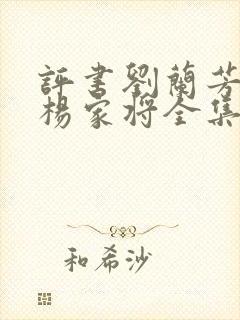 評書劉蘭芳
楊家將全集
和希沙